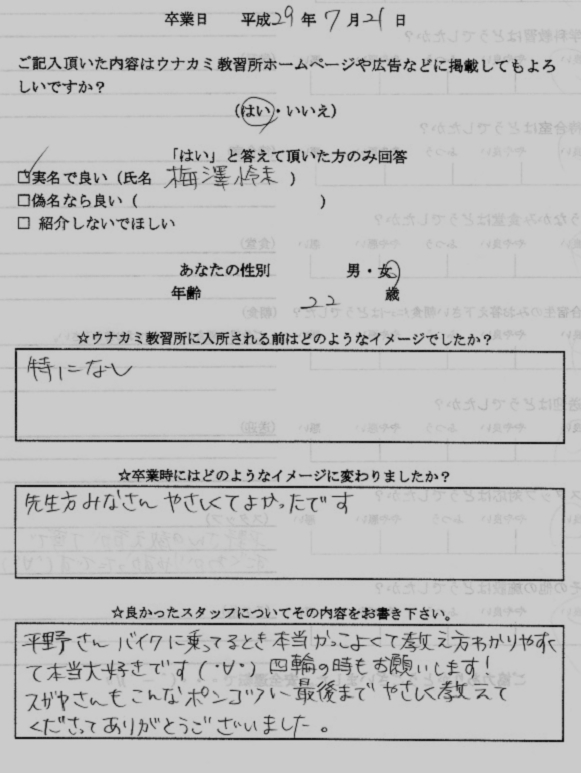 卒業日 平成29年7月21日
ご記入頂いた内容はウナカミ教習所ホームページや広告などに掲載してもよろ
しいですか?
(はい・いいえ)
「はい」と答えて頂いた方のみ回答
☑実名で良い(氏名 梅澤怜未 )
□偽名なら良い( )
□ 紹介しないでほしい
あなたの性別 男・女
年齢 22 歳
☆ウナカミ教習所に入所される前はどのようなイメージでしたか?
特になし
☆卒業時にはどのようなイメージに変わりましたか?
先生方みなさん やさしくてよかったです
☆良かったスタッフについてその内容をお書き下さい。
平野さん バイクに乗ってるとき本当かっこよくて教え方わかりやすく
て本当大好きです(・∀・)四輪の時もお願いします!
スガヤさんもこんなポンコツに最後までやさしく教えて
くださってありがとうございました。